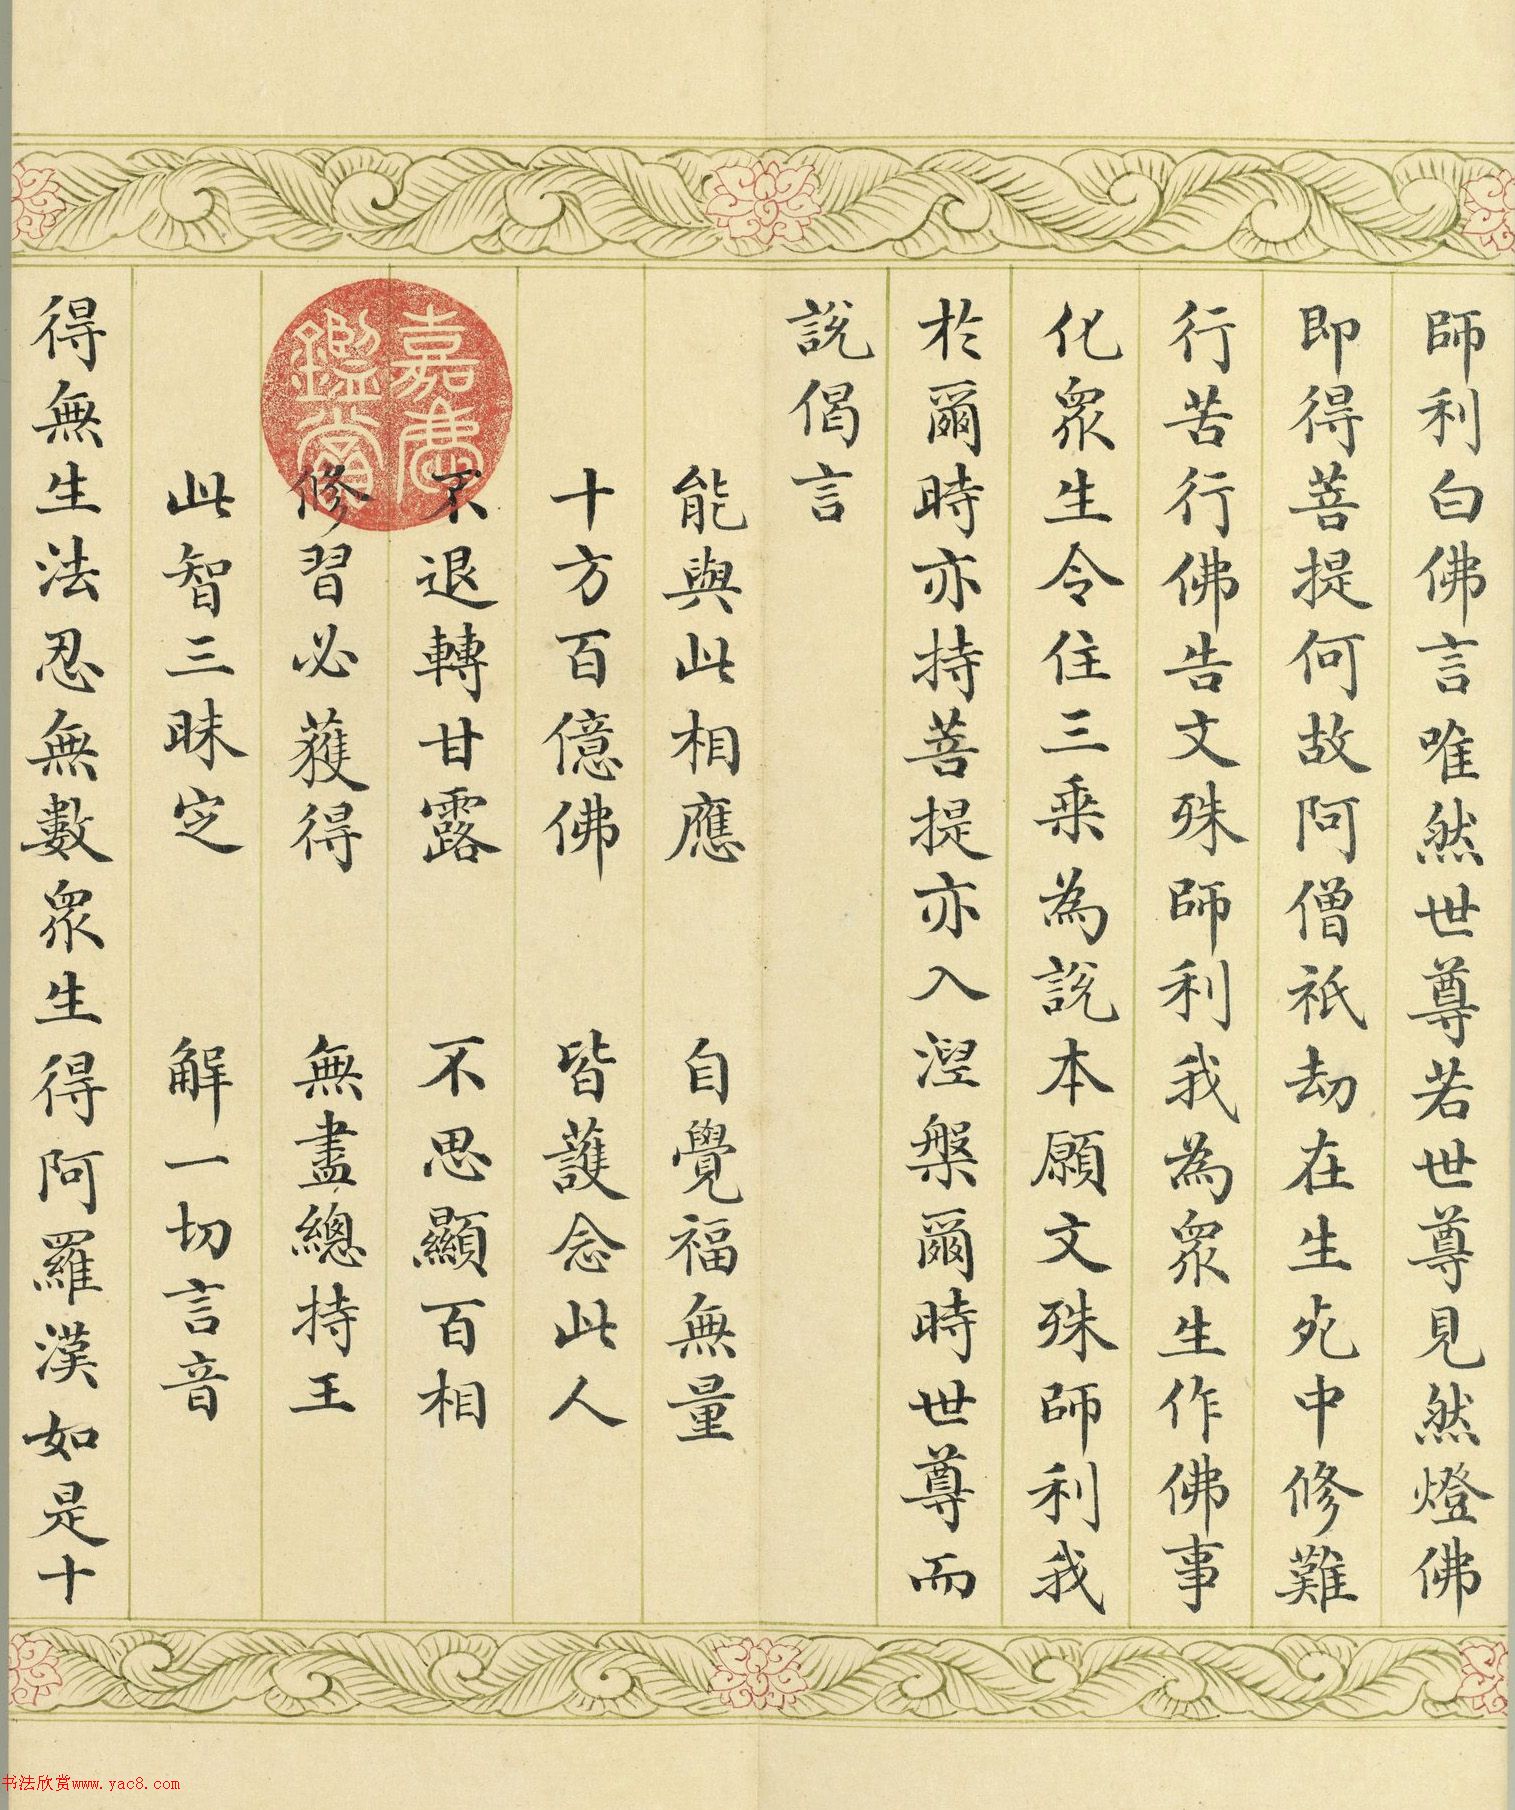 師利白佛言唯然世尊若世尊見然燈佛
即得菩提何故阿僧祇劫在生死中修難
行苦行佛告文殊師利我為眾生作佛事
化眾生令住三乘為說本願文殊師利我
於爾時亦持菩提亦入涅槃爾時世尊而
說偈言
能與此相應 自覺福無量
十方百億佛 皆護念此人
不退轉甘露 不思顯百相
修習必獲得 無盡總持王
此智三昧定 解一切言音
得無生法忍無數眾生得阿羅漢如是十
嘉慶
鑑賞
书法欣赏www.yac8.com